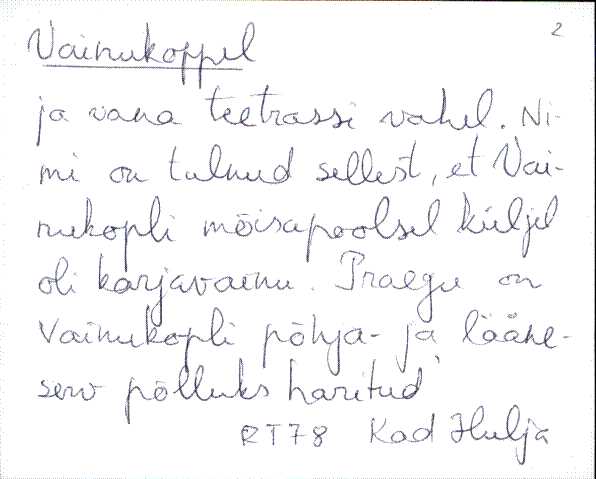 2
Vainukoppel
ja vana teetrassi vahel. Ni-
mi on tulnud sellest, et Vai-
nukopli mõisapoolsel küljel
oli karjavainu. Praegu on
Vainukopli põhja- ja lääne-
serv põlluks haritud
RT78 Kad Hulja